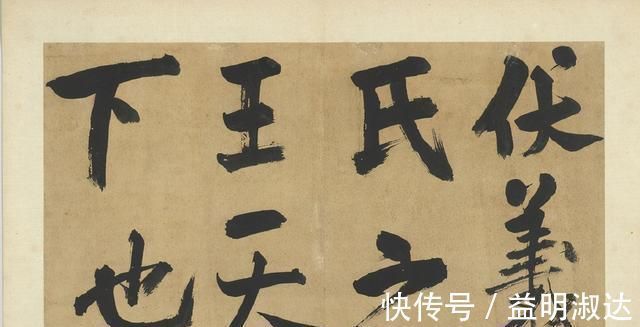 伏羲
氏之
王天
下也
快传号 / 益明淑达